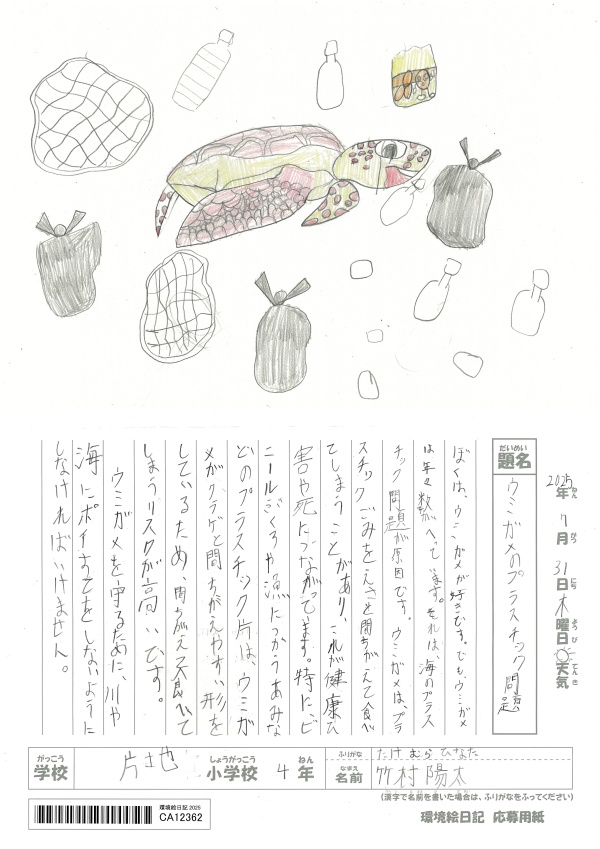 2025年ねん 7月がつ 31日にち 木曜日ようび 天気てんき
題名だいめい
ウミガメのプラスチック問題
ぼくは、ウミガメが好きです。でも、ウミガメ
は年々数がへっています。それは、海のプラス
チック問題が原因です。ウミガメは、プラ
スチックごみをえさと間ちがえて食べ
てしまうことがあり、これが健康ひ
害や死につながってます。特にビ
ニールぶくろや漁につかうあみな
どのプラスチック片は、ウミガ
メがクラゲと間ちがえやすい形を
しているため、間ちがえ食べて
しまうリスクが高いです。
ウミガメを守るために、川や
海にポイすてをしないように
しなければいけません。
学校がっこう 片地 小学校しょうがっこう 4年ねん
ふりがな たけむらひなた
名前なまえ 竹村陽太
(漢字で名前を書いた場合は、ふりがなをふってください)
環境絵日記 2025
CA12362
環境絵日記 応募用紙